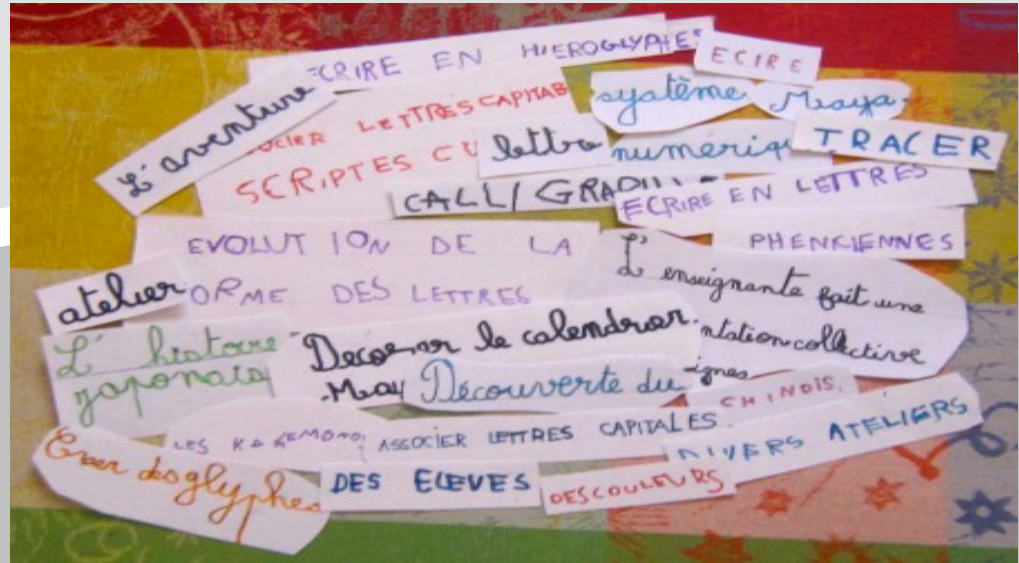 ECRIRE EN HIEROGLYPHES
ECIRE
L'aventure
LETTRES CAPITAB
système Maya
SCRIPTES CU
lettre
numériq
TRACER
CALLIGRAPHI
ECRIRE EN LETTRES
PHENICIENNES
EVOLUTION DE LA
ORME DES LETTRES
atelier
L'enseignante fait une
ntation collective
ignes
L'histoire
japonais
le calendrier
May
Découverte du
CHINOIS.
LES KAKEMONO
ASSOCIER LETTRES CAPITALES.
DIVERS ATELIERS
Creer des glyphes
DES ELEVES
DES COULEURS